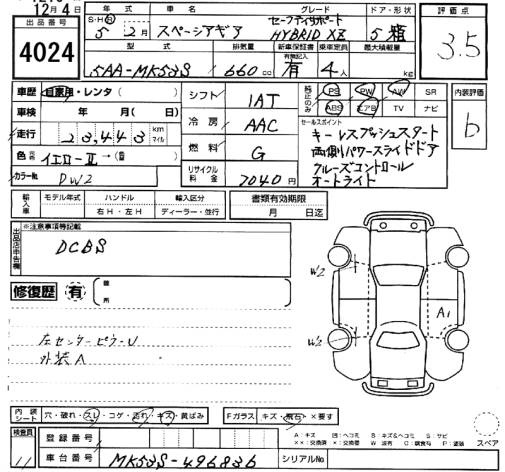 12月4日
出品番号
4024
年式 車名 グレード ドア・形状
S・H・R 5年 2月 スペーシアギア セーフティサポート HYBRID XZ 5 箱
型式 排気量 新車保証書 乗車定員 最大積載量
5AA-MK53S 660cc 有 4人 kg
有無記入
評価点
3.5
車歴 自家用・レンタ( )
車検 年 月( 日)
走行 23,443 km マイル
色 元色 イエローII→( )
カラーNo. DW2
シフト IAT
冷房 AAC
燃料 G
リサイクル料金 7040円
純正のみ PS PW AW SR
ABS エアB TV ナビ
内装評価
b
セールスポイント
キーレスプッシュスタート
両側パワースライドドア
クルーズコントロール
オートライト
輸入車 モデル年式 ハンドル 輸入区分
年 右H・左H ディーラー・並行
書類有効期限
月 日迄
出品店申告欄
※注意事項等記載
DCBS
修復歴 有
箇所
左センターピラーU
外装A
W2
W2
A1
内装シート 穴・破れ・スレ・コゲ・汚れ・キズ・黄ばみ
Fガラス キズ・飛石・×要す
検査員
11
登録番号
車台番号 MK53S-496836
シリアルNo.
A:キズ 凹:ヘコミ B:キズ&ヘコミ S:サビ
××:交換済 ×:交換 W:波有 C:腐食有 P:塗装
スペア